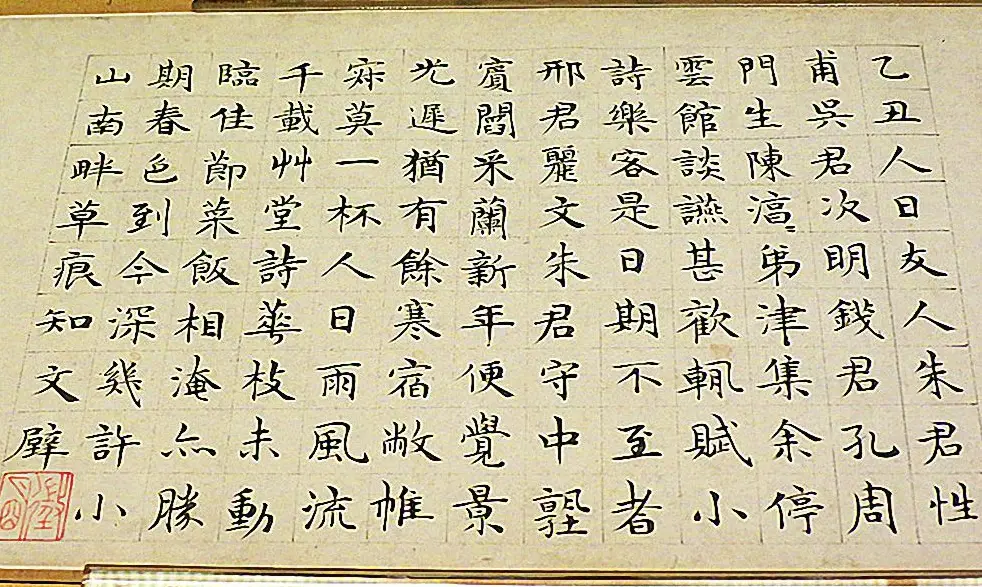 乙丑人日友人朱君性
甫吳君次明錢君孔周
門生陳淳〻弟津集余停
雲館談讌甚歡輒賦小
詩樂客是日期不至者
邢君麗文朱君守中塾
賓閻采蘭新年便覺景
光遲猶有餘寒宿敝帷
寂莫一杯人日雨風流
千載艸堂詩華枝未動
臨佳節菜飯相淹亦勝
期春色到今深幾許小
山南畔草痕知文壁